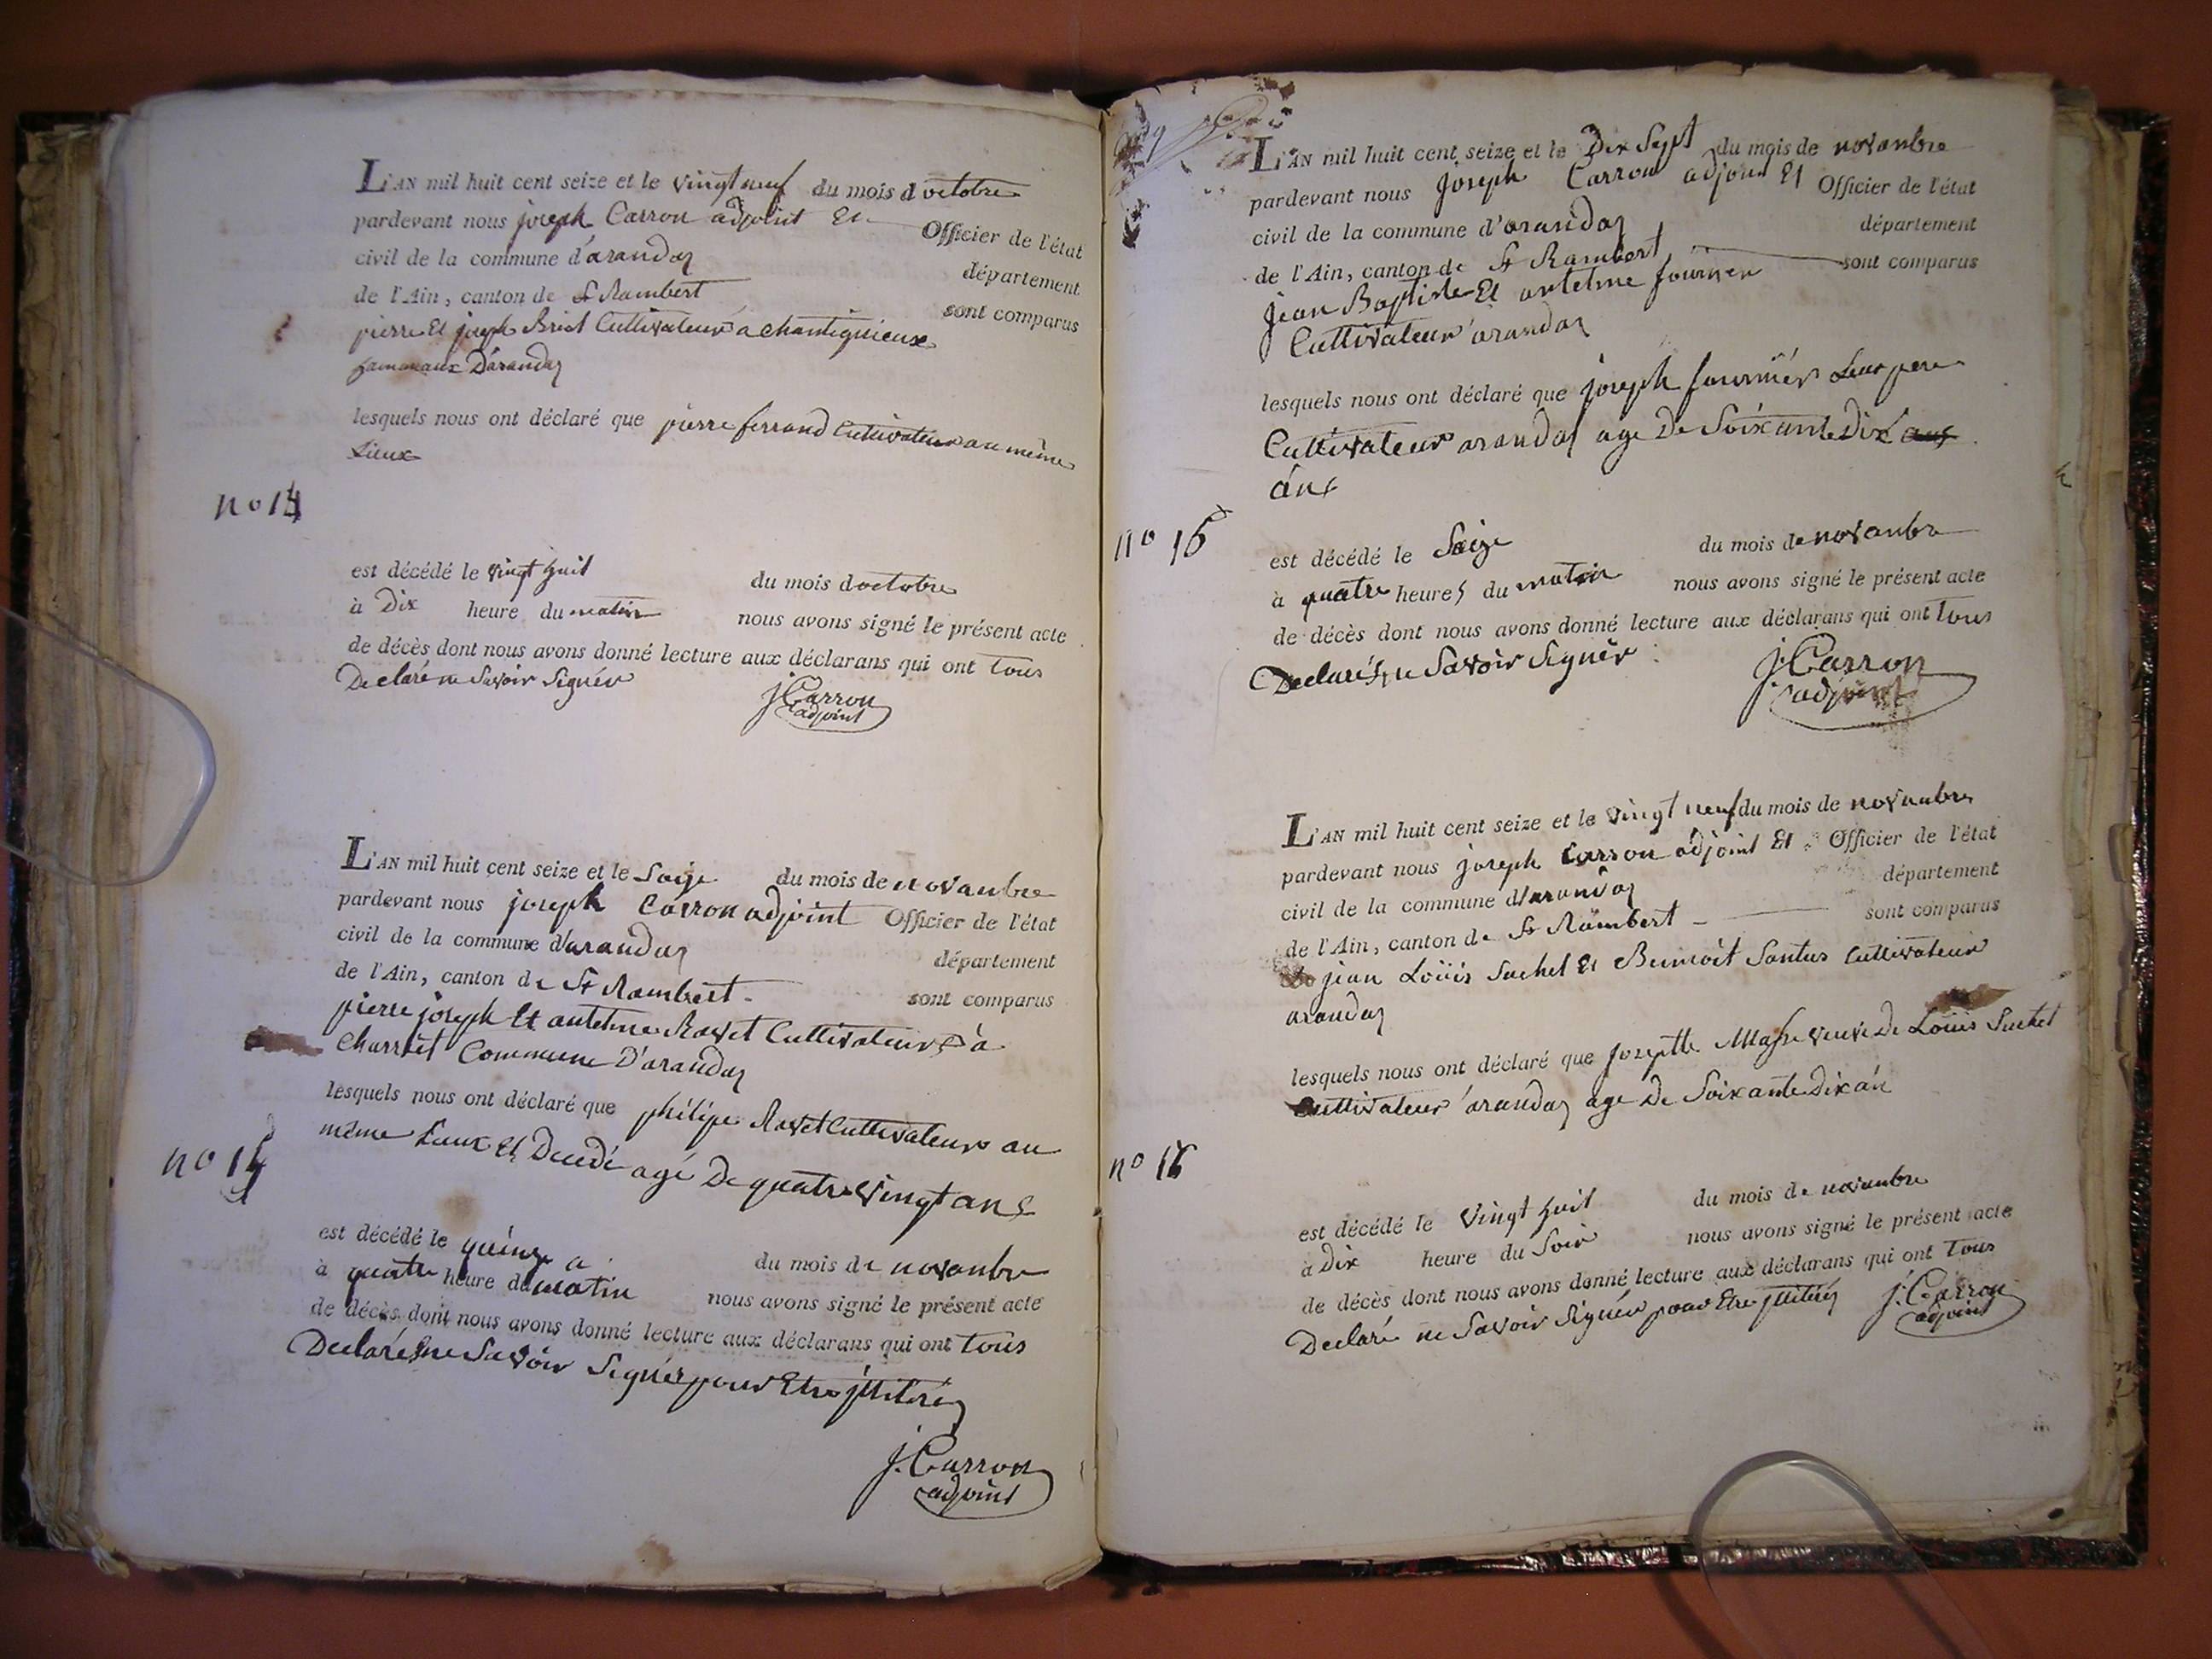 L'AN mil huit cent seize et le vingt neuf du mois d octobre
pardevant nous joseph Carron adjoint Et Officier de l'état
civil de la commune d'arandaz département
de l'Ain, canton de St Rambert sont comparus
pierre Et joseph Briet Cultivateur a Chantiguieux
hamaux D'arandaz
lesquels nous ont déclaré que pierre ferrand Cultivateur au même
Lieux
no 14
est décédé le vingt huit du mois d octobre
à Dix heure du matin nous avons signé le présent acte
de décès dont nous avons donné lecture aux déclarans qui ont tous
Declaré ne Savoir Signér
J. Carron
adjoint
L'AN mil huit cent seize et le Saize du mois de novanbre
pardevant nous joseph Carron adjoint Officier de l'état
civil de la commune d'arandaz département
de l'Ain, canton de St Rambert sont comparus
pierre joseph Et antelme Ravet Cultivateurs à
Charvet Commune D'arandaz
lesquels nous ont déclaré que philipe Ravet Cultivateur au
même Lieux Et Decedé agé De quatre vingt ans
no 15
est décédé le quinze a du mois de novanbre
à quatre heure du matin nous avons signé le présent acte
de décès dont nous avons donné lecture aux déclarans qui ont tous
Declarés ne Savoir Signér pour Etre jllitéré
J. Carron
adjoint
L'AN mil huit cent seize et le Dix Sept du mois de novanbre
pardevant nous Joseph Carron adjoint Et Officier de l'état
civil de la commune d'arandaz département
de l'Ain, canton de St Rambert sont comparus
jean Baptiste Et antelme fournier
Cultivateur arandaz
lesquels nous ont déclaré que joseph fournier Leur pere
Cultivateur arandaz age De Soixante Dix ans
ans
no 16
est décédé le Saize du mois de novanbre
à quatre heures du matin nous avons signé le présent acte
de décès dont nous avons donné lecture aux déclarans qui ont tous
Declarés ne Savoir Signér
J. Carron
adjoint
L'AN mil huit cent seize et le vingt neuf du mois de novanbre
pardevant nous joseph Carron adjoint Et Officier de l'état
civil de la commune d'arandaz département
de l'Ain, canton de St Rambert sont comparus
jean Loüis Suchet Et Benoit Santus Cultivateur
arandaz
lesquels nous ont déclaré que josephte Masse veuve De Loüis Suchet
Cultivateur arandaz age De Soixante Dix an
no 16
est décédé le vingt huit du mois de novanbre
à Dix heure du Soir nous avons signé le présent acte
de décès dont nous avons donné lecture aux déclarans qui ont tous
Declaré ne Savoir Signér pour Etre jllitéré J. Carron
adjoint